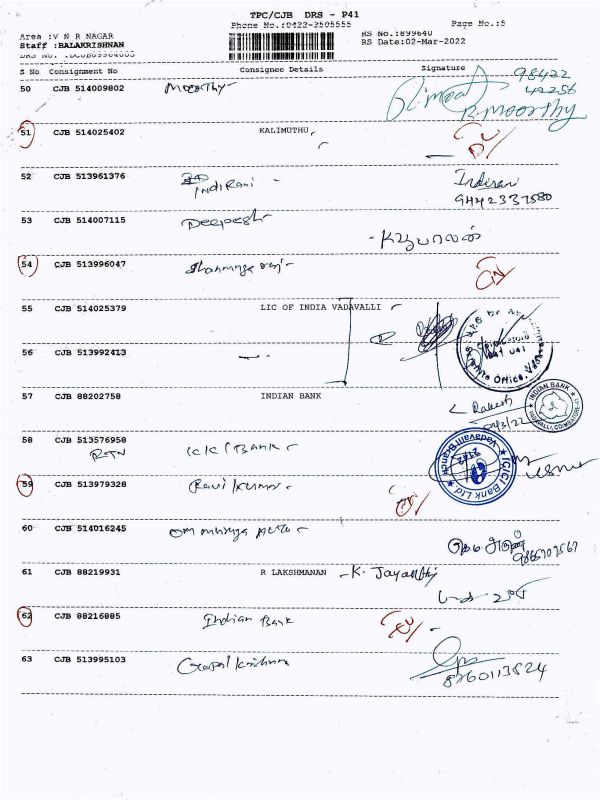 TPC/CJB DRS - P41
Phone No.:0422-3505555
Page No.:5
Area :V N R NAGAR
RS No.:899640
Staff :BALAKRISHNAN
RS Date:02-Mar-2022
S No Consignment No Consignee Details Signature
50 CJB 514009802 Moorthy
98422
42256
R. Moorthy
51 CJB 514025402 KALIMUTHU
52 CJB 513961376 Indirani Indirani
9442337580
53 CJB 514007115 Deepesh
54 CJB 513996047
55 CJB 514025379 LIC OF INDIA VADAVALLI
56 CJB 513992413
57 CJB 88202758 INDIAN BANK Rakesh
INDIAN BANK
58 CJB 513576958 ICICI Bank
RTN
ICICI Bank Ltd
Vadavalli Branch
59 CJB 513979328 Ravi kumar
60 CJB 514016245
61 CJB 88219931 R LAKSHMANAN K. Jayanthi
62 CJB 88216885 Indian Bank
63 CJB 513995103 Gopal Krishna
8760113824